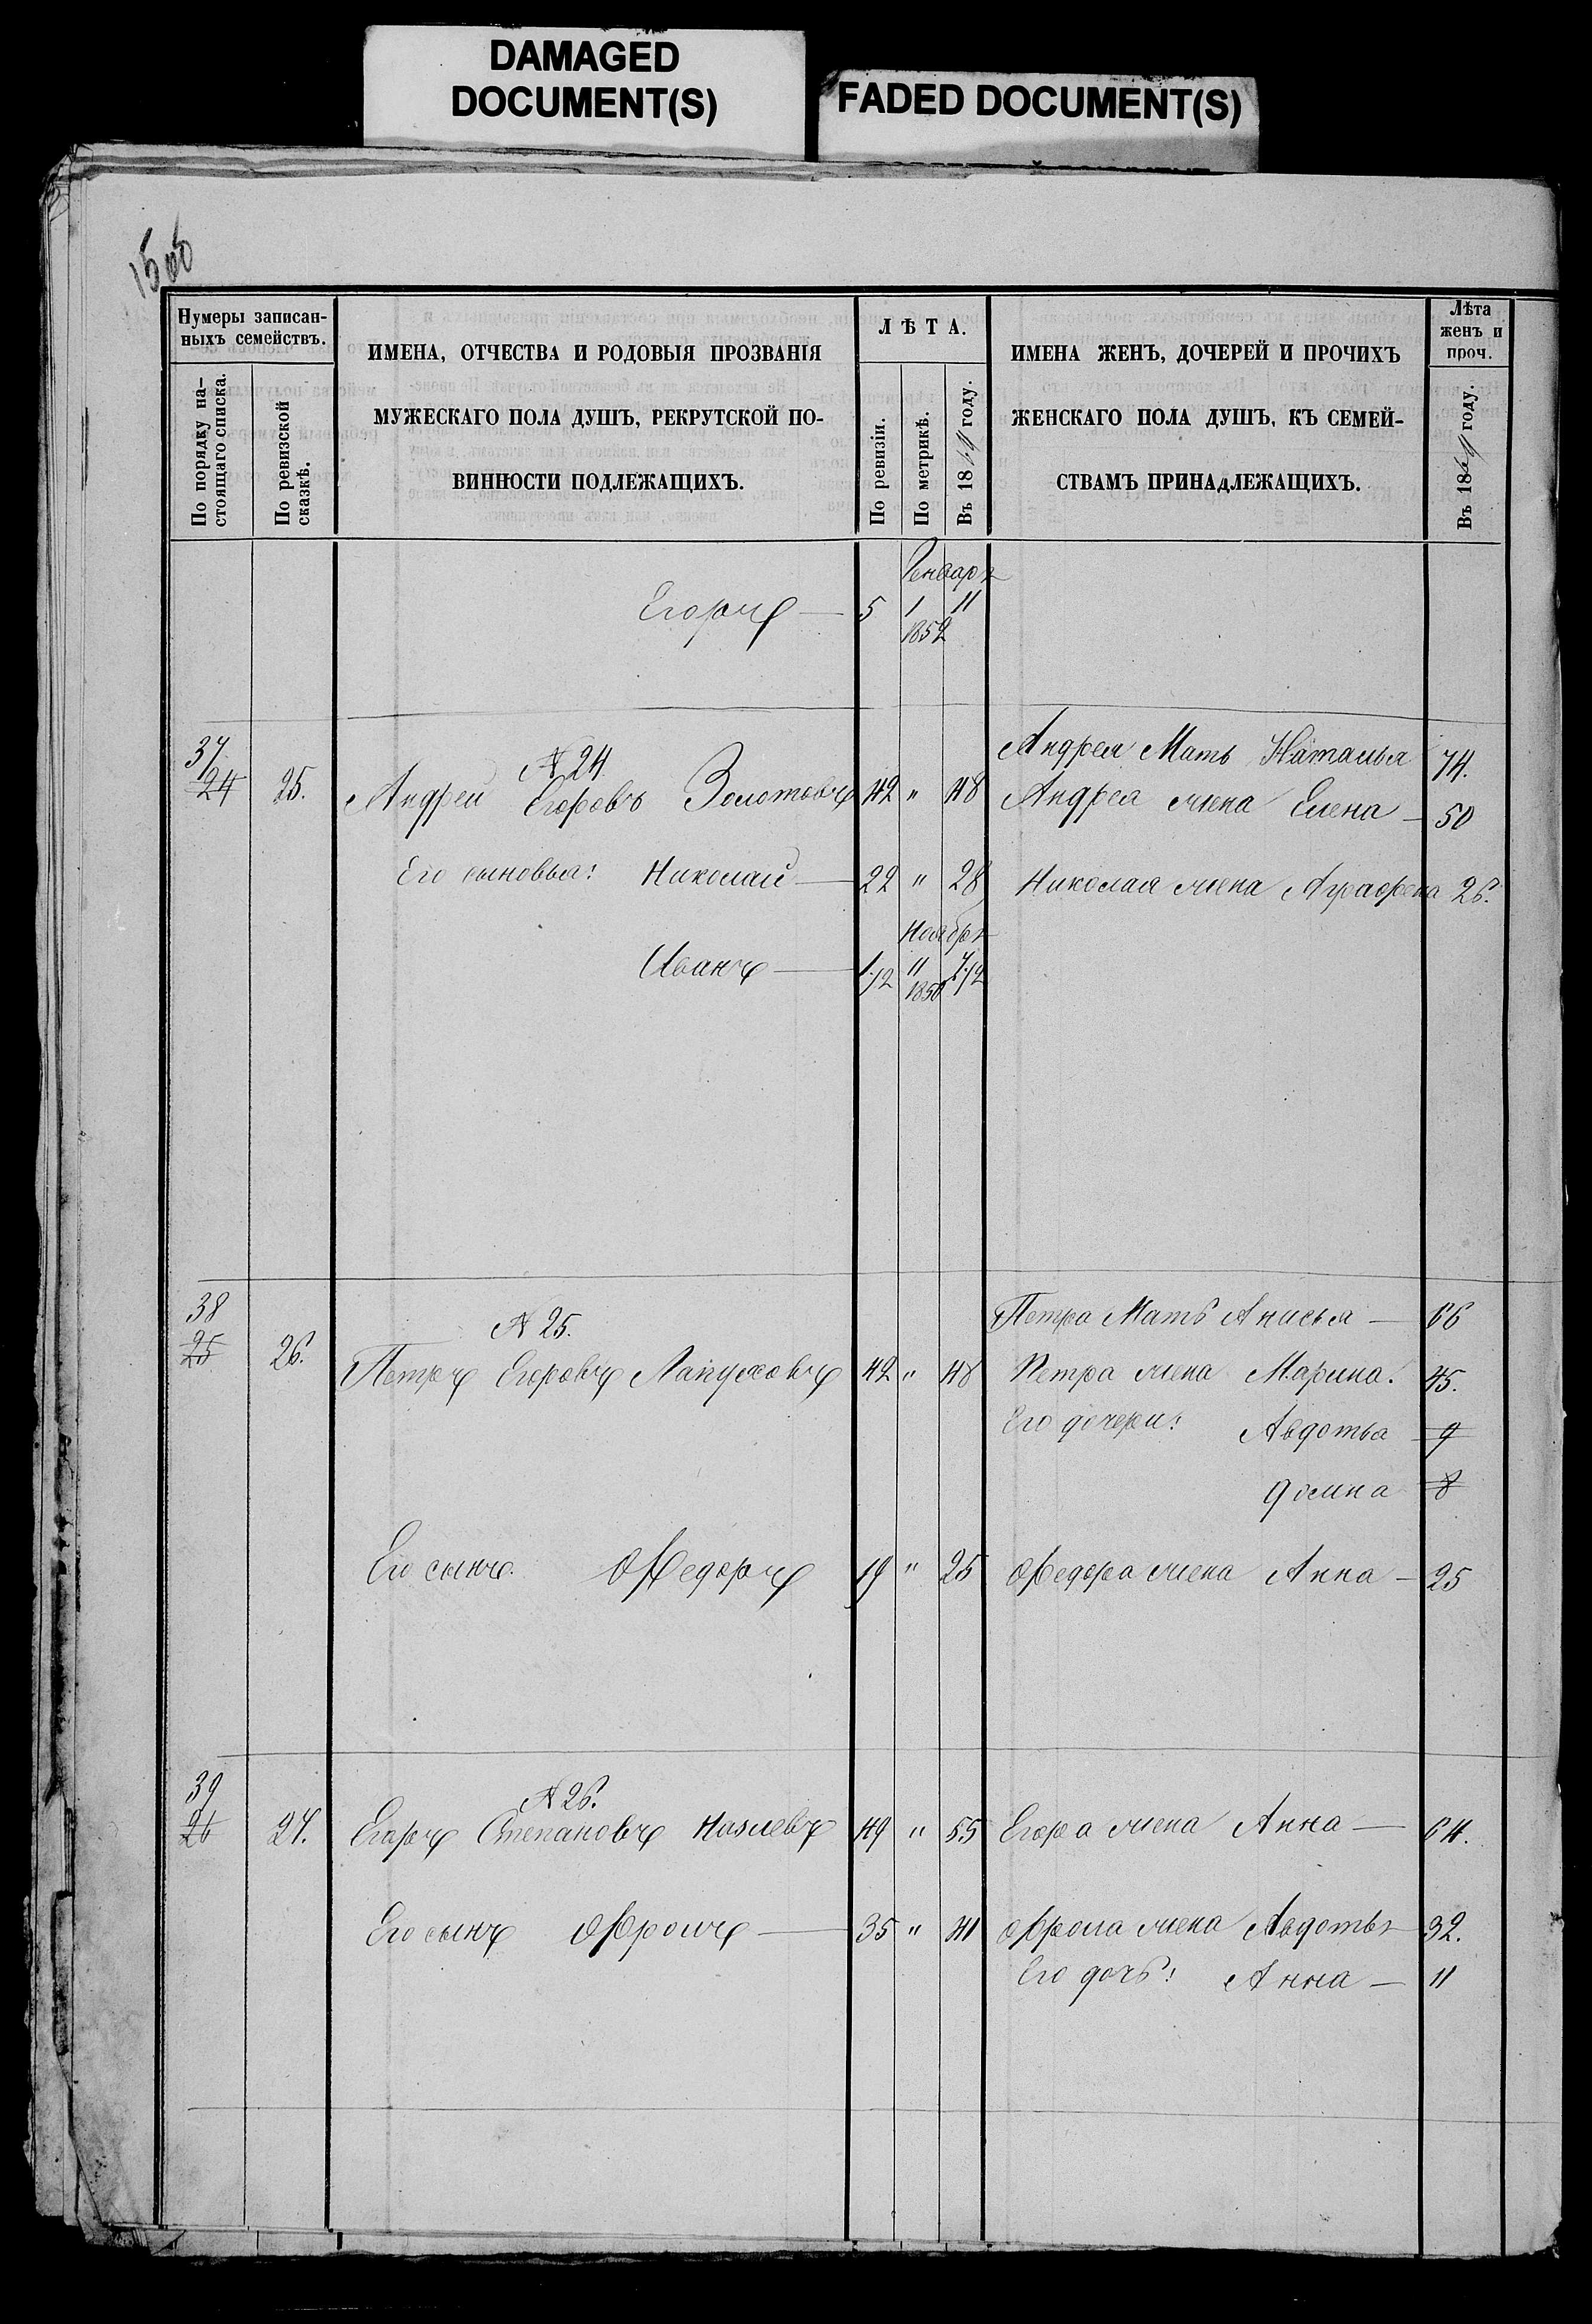 DAMAGED
DOCUMENT(S)
FADED DOCUMENT(S)
Нумеры записан-
ныхъ семействъ.
По порядку на-
стоящаго списка.
По ревизской
сказкѣ.
ИМЕНА, ОТЧЕСТВА И РОДОВЫЯ ПРОЗВАНІЯ
МУЖЕСКАГО ПОЛА ДУШЪ, РЕКРУТСКОЙ ПО-
ВИННОСТИ ПОДЛЕЖАЩИХЪ.
ЛѢТА.
По ревизіи.
По метрикѣ.
Въ 18 году.
ИМЕНА ЖЕНЪ, ДОЧЕРЕЙ И ПРОЧИХЪ
ЖЕНСКАГО ПОЛА ДУШЪ, КЪ СЕМЕЙ-
СТВАМЪ ПРИНАДЛЕЖАЩИХЪ.
Лѣта
женъ и
проч.
Въ 18 году.
Генваря
Егоръ — 5 1 11
1852
37 Андрея Мать Наталья 74.
N 24.
24 25. Андрей Егоровъ Золотовъ 42 " 48 Андрея жена Елена — 50
Его сыновья: Николай — 22 " 28 Николая жена Аграфена 26.
Ноября
Иванъ — 1/2 11 7 1/2
1850
38 Петра Мать Анисья — 66
N 25.
25 26. Петръ Егоровъ Лапуховъ 42 " 48 Петра жена Марина. 45.
Его дочери: Авдотья 9
8
Его сынъ. Ѳедоръ 19 " 25 Ѳедора жена Анна — 25
39
N 26.
26 27. Егоръ Степановъ 49 " 55 Егора жена Анна — 64.
Его сынъ Фролъ — 35 " 41 Фрола жена Авдотья 32.
Его дочь: Анна — 11